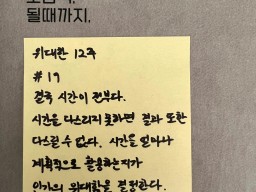 될때까지.
위대한 12주
#19
결국 시간이 전부다.
시간을 다스리지 못하면 결과 또한
다스릴 수 없다. 시간을 얼마나
계획적으로 활용하는지가
인간의 위대함을 결정한다.